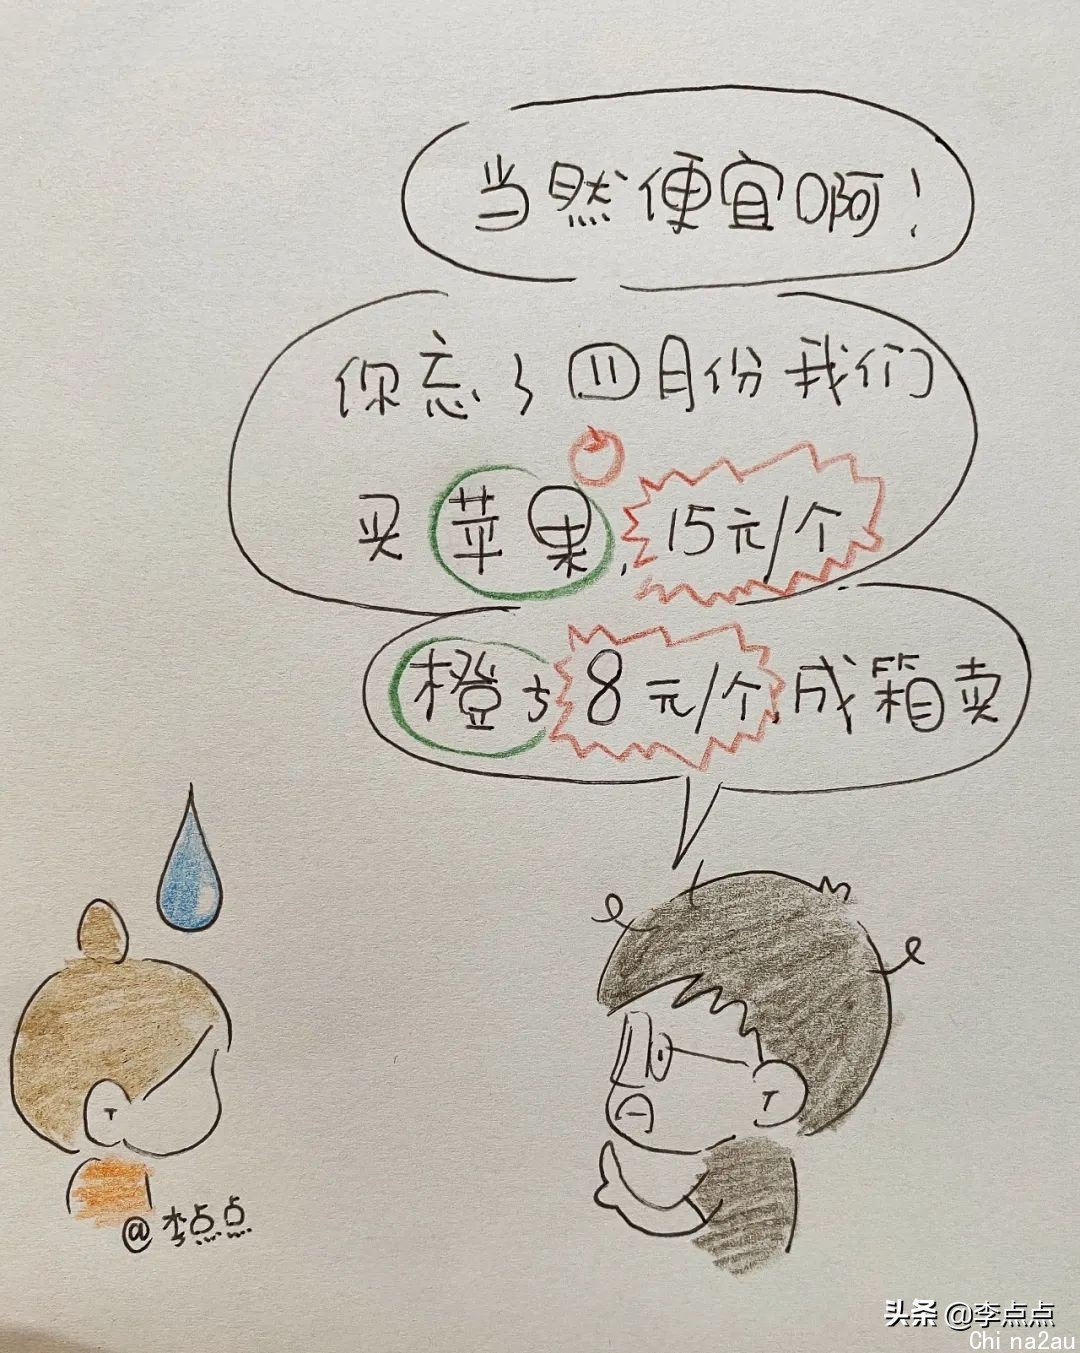 当然便宜啊！
你忘了四月份我们
买苹果，15元/个
橙子8元/个，成箱卖
@李点点
头条 @李点点
Chi na2au